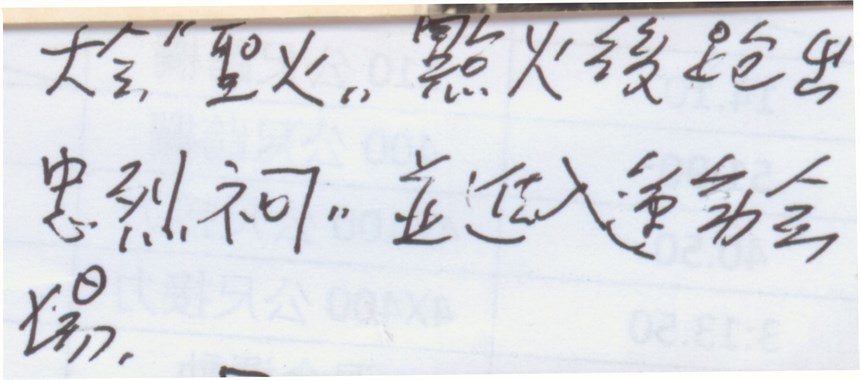 大会"聖火"點火後跑出
忠烈祠"並進入運動会
場.